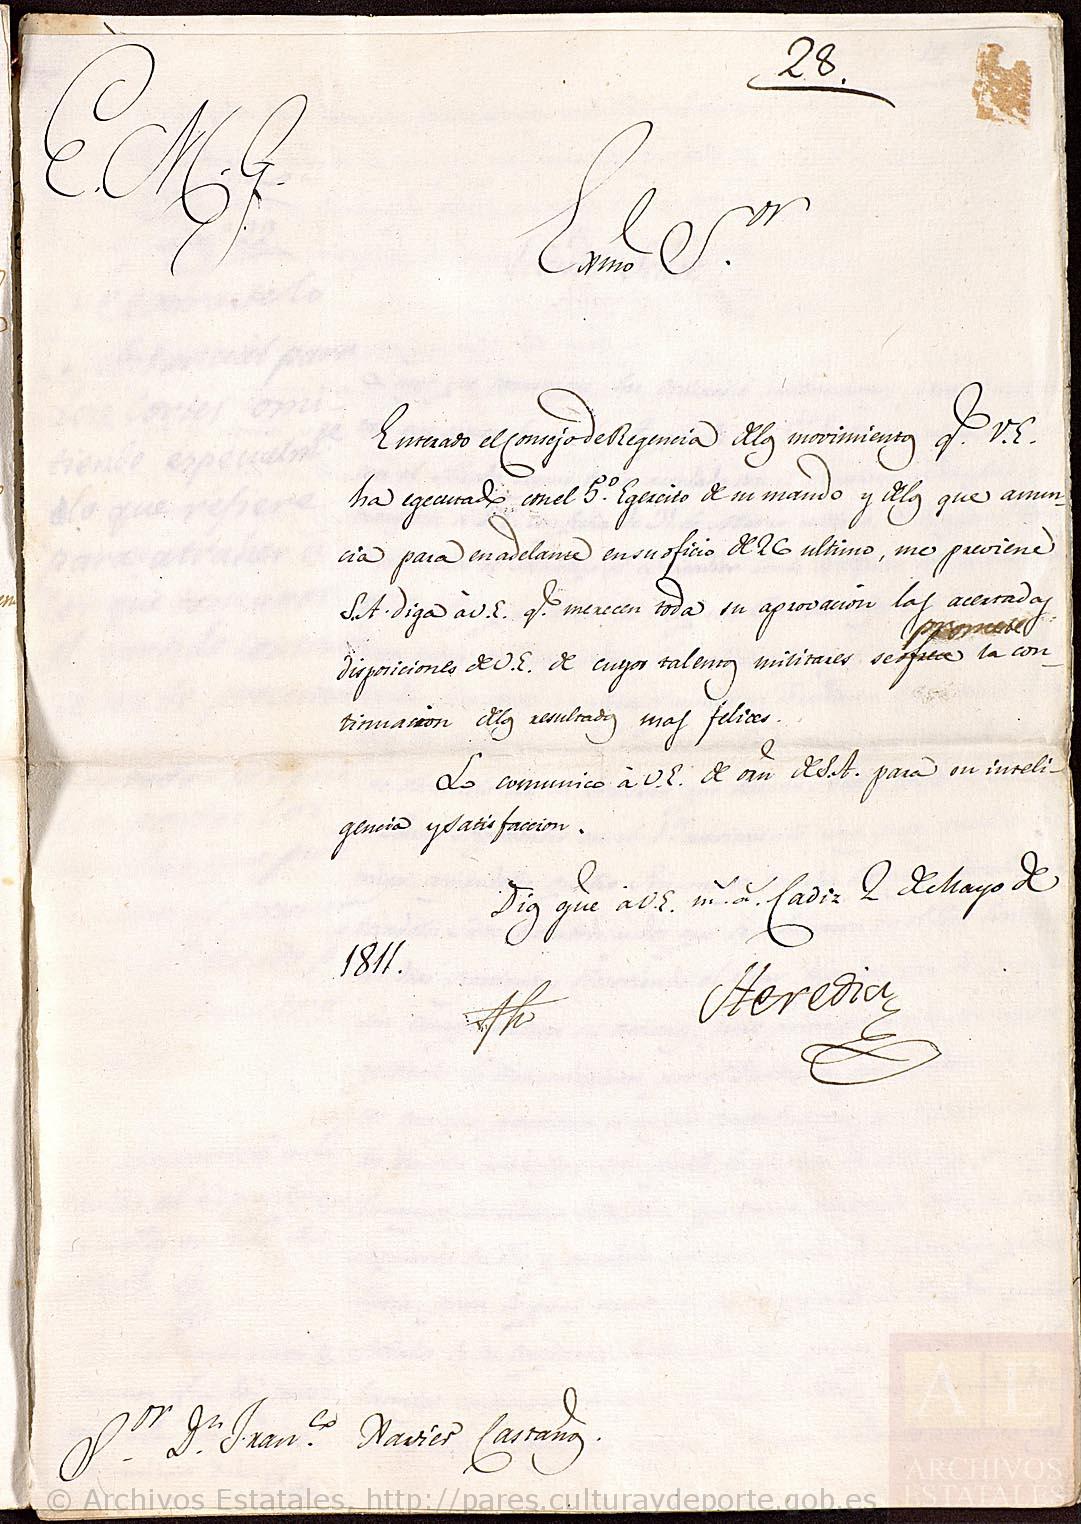 28.
E. M. G.
Exmo Sor.
Enterado el Consejo de Regencia delos movimientos qe. V.E.
ha egecutado con el 5º. Egercito de su mando y delos que anun-
cia para en adelante en su oficio de 26 ultimo, me previene
S.A. diga à V.E. qe. merecen toda su aprovacion las acertadas
promete
disposiciones de V.E. de cuyos talentos militares se ofrece la con-
tinuacion delos resultados mas felices.
Lo comunico à V.E. de orn de S.A. para su inteli-
gencia y satisfaccion.
Dios gue à V.E. ms. as. Cadiz 2 de Mayo de
1811.
Heredia
Sor. Dn. Franco. Xavier Castaños.
© Archivos Estatales, http://pares.culturaydeporte.gob.es
ARCHIVOS
ESTATALES